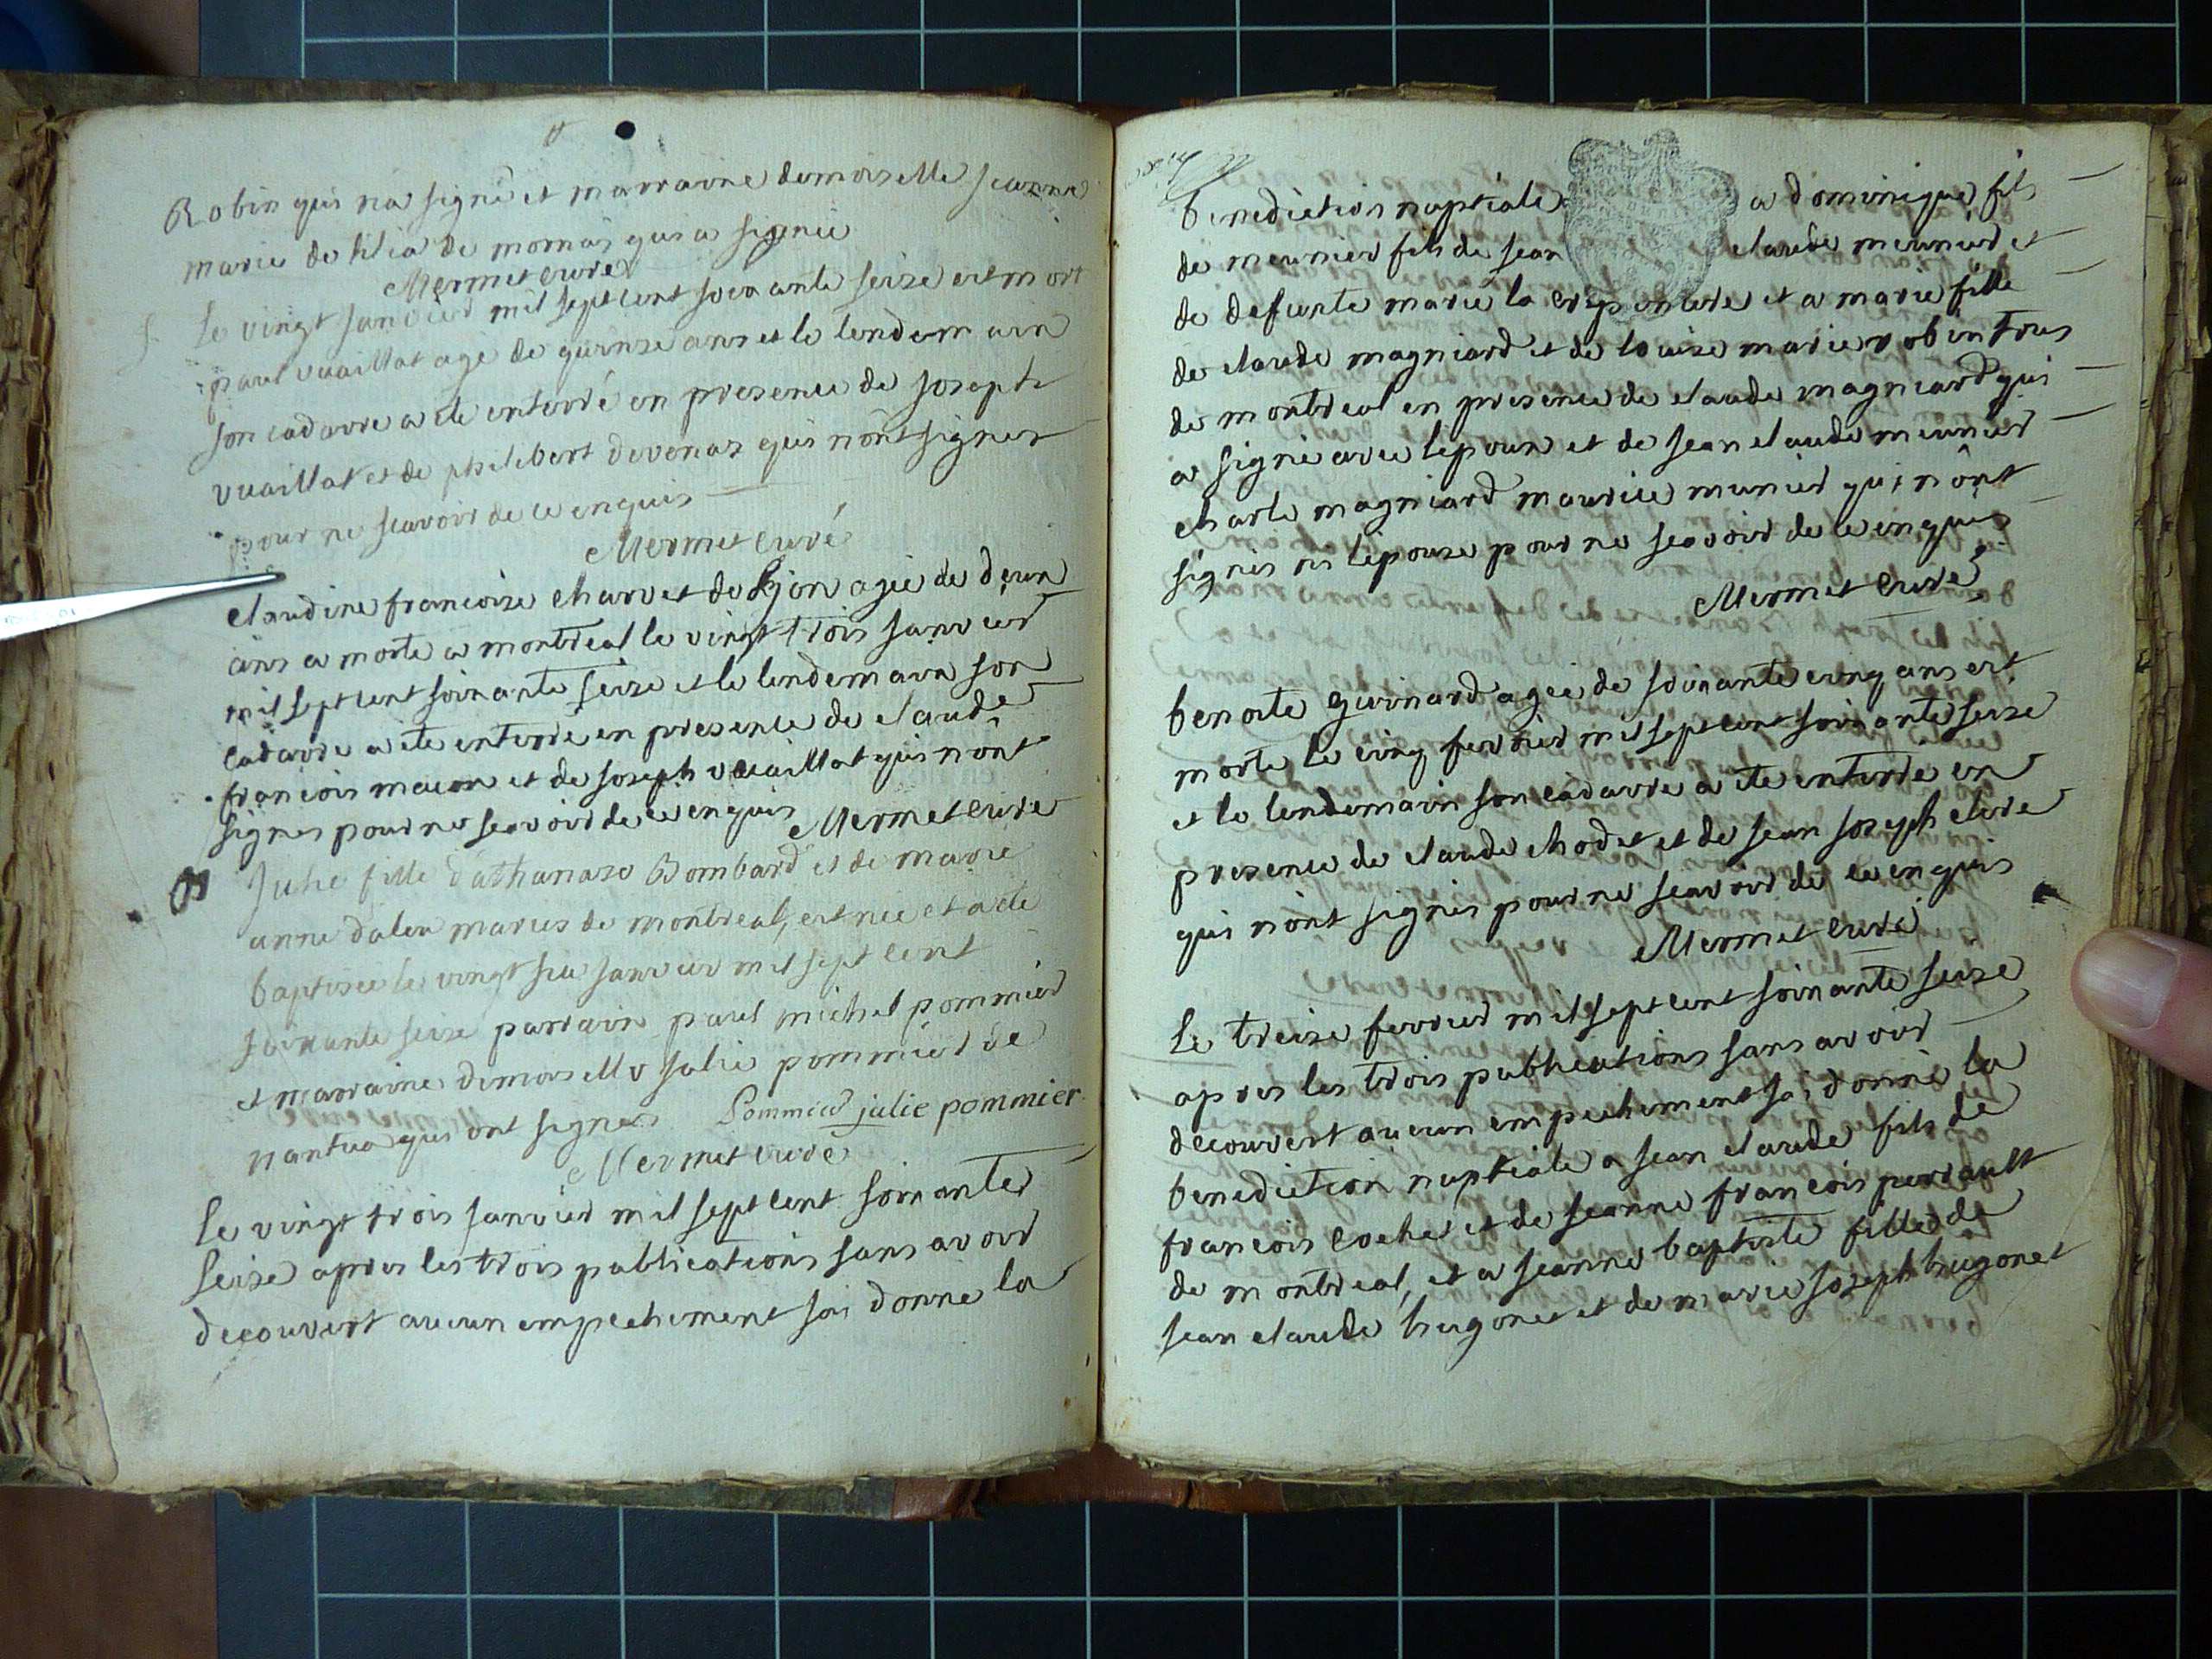 Robin qui n'a signé et marraine demoiselle jeanne
marie de lilia de mornas qui a signée
Mermet curé
Le vingt janvier mil sept cent soixante seize est mort
paul vuaillat agé de quinse ans et le lendemain
son cadavre a été enterré en presence de joseph
vuaillat et de philibert devenaz qui n'ont signes
pour ne scavoir de ce enquis
Mermet curé
claudine francoise charvet de Lyon agée de deux
ans a morte a montreal le vingt trois janvier
mil sept cent soixante seize et le lendemain son
cadavre a ete enterré en presence de claude
francois macon et de joseph vuaillat qui n'ont
signes pour ne scavoir de ce enquis Mermet curé
Julie fille d'athanase Bombard et de marie
anne dalex maries de montreal, est née et a ete
baptisée le vingt six janvier mil sept cent
soixante seize parrain paul michel pommier
et marraine demoiselle julie pommier de
nantua qui ont signes Pommier julie pommier
Mermet curé
Le vingt trois janvier mil sept cent soixante
seize apres les trois publications sans avoir
decouvert aucun empechement j'ai donné la
benediction nuptiale a dominique fils
de meunier fils de jean claude meunier et
de defunte marie la et a marie fille
de claude magniard et de louise marie robin tous
de montreal en presence de claude magniard qui
a signé avec l'epoux et de jean claude meunier
charle magniard maurice munier qui n'ont
signés ni l'epouse pour ne scavoir de ce enquis
Mermet curé
benoite guinard agée de soixante cinq ans est
morte le cinq fevrier mil sept cent soixante seize
et le lendemain son cadavre a ete enterré en
presence de claude chodet et de jean joseph clere
qui n'ont signés pour ne scavoir de ce enquis
Mermet curé
Le treize fevrier mil sept cent soixante seize
apres les trois publications sans avoir
decouvert aucun empechement j'ai donné la
benediction nuptiale a jean claude fils de
francois coche et de jeanne francois perrault
de montreal, et a jeanne baptiste fille de
jean claude hugonet et de marie joseph hugonet